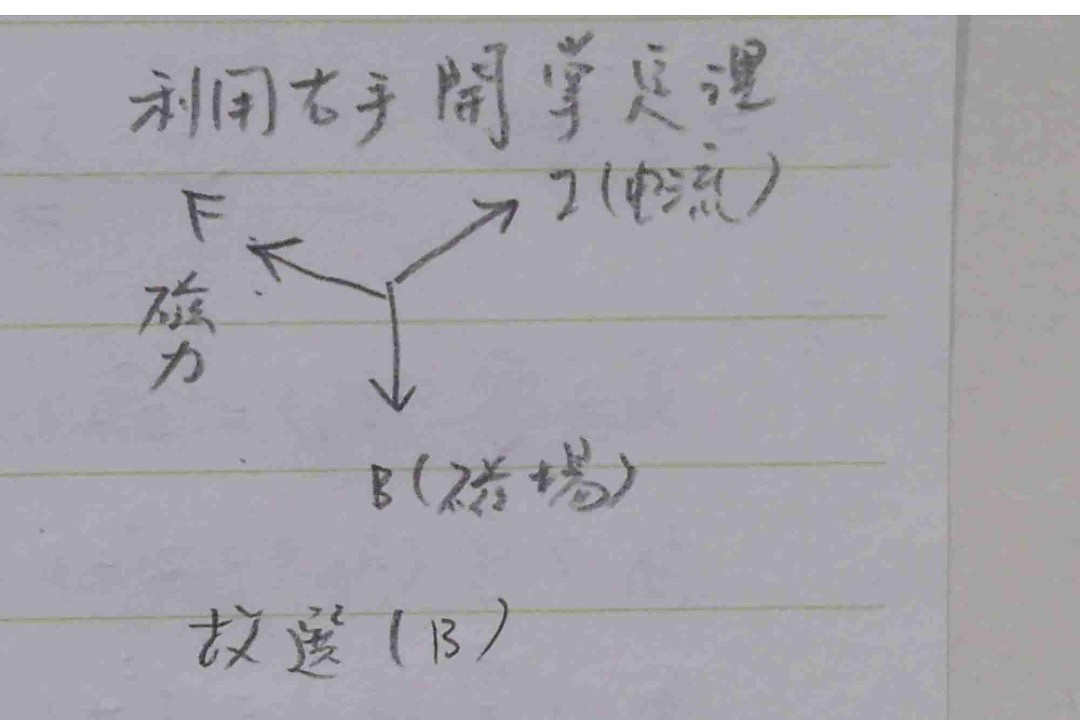 利用右手開掌定理
I(电流)
F
磁
力
B(磁場)
故選(B)